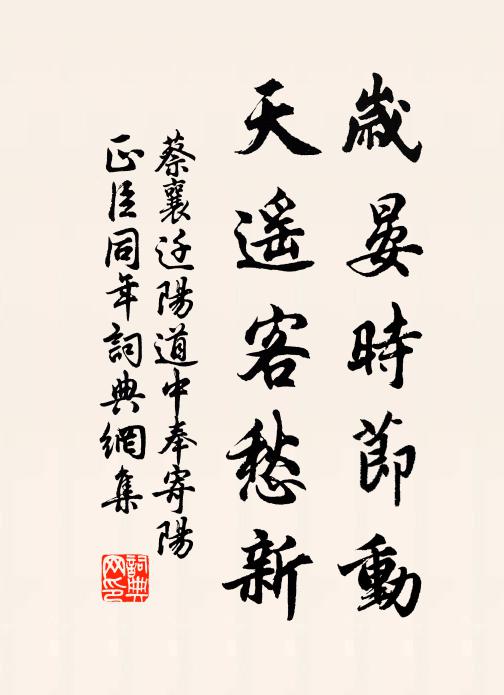 歲晏時節動
天遥客愁新
蔡襄迁陽道中奉寄陽
正臣同年詞典網集
詞典网印